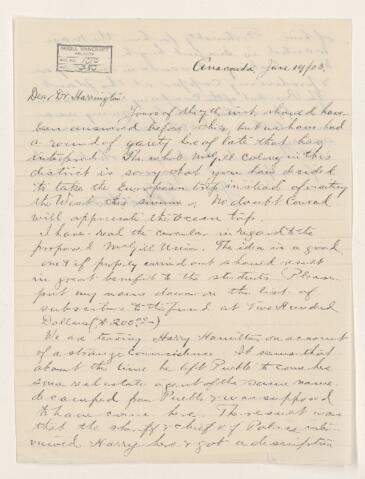 McGILL UNIVERSITY
ARCHIVES
ACC. NO.
REF.
Anaconda, June 14/03.
Dear Dr. Harrington:
Yours of May inst. should have
been answered before this, but we have had
a round of gaiety here of late that has
interfered. The whole McGill colony in this
district is sorry that you have decided
to take the European trip instead of visiting
the West this summer. No doubt Conrad
will appreciate the Ocean trip.
I have read the circular in regard to the
proposed McGill Union. The idea is a good
one & if properly carried out should result
in great benefit to the students. Please
put my name down on the list of
subscribers to the fund at Two Hundred
Dollars ($200.00)
We are teasing Harry Hamilton on account
of a strange coincidence. It seems that
about the time he left Pueblo to come here
some real estate agent of the same name
decamped from Pueblo & was supposed
to have come here. The result was
that the sheriff & chief of Police inter-
viewed Harry here & got a description